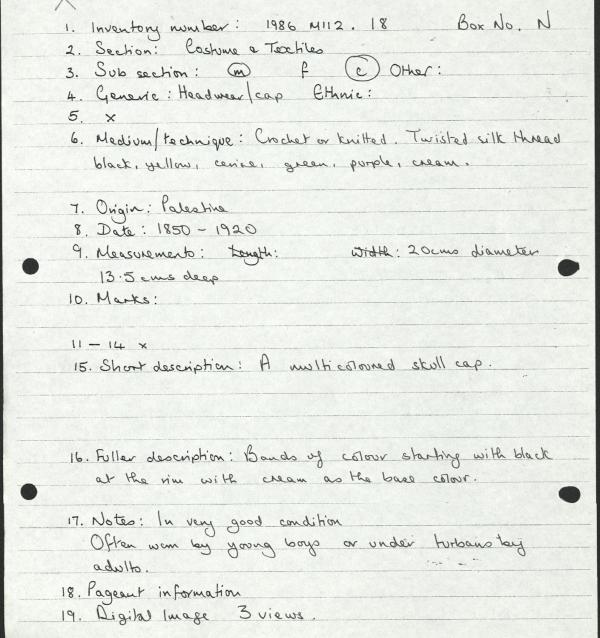 1. Inventory number: 1986 M112. 18 Box No. N
2. Section: Costume & Textiles
3. Sub section: m f c Other:
4. Generic: Headwear/cap Ethnic:
5. x
6. Medium/technique: Crochet or knitted. Twisted silk thread
black, yellow, cerise, green, purple, cream.
7. Origin: Palestine
8. Date: 1850 - 1920
9. Measurements: Length: Width: 20cms diameter
13.5 cms deep
10. Marks:
11 - 14 x
15. Short description: A multicoloured skull cap.
16. Fuller description: Bands of colour starting with black
at the rim with cream as the base colour.
17. Notes: In very good condition
Often worn by young boys or under turbans by
adults.
18. Pageant information
19. Digital Image 3 views.